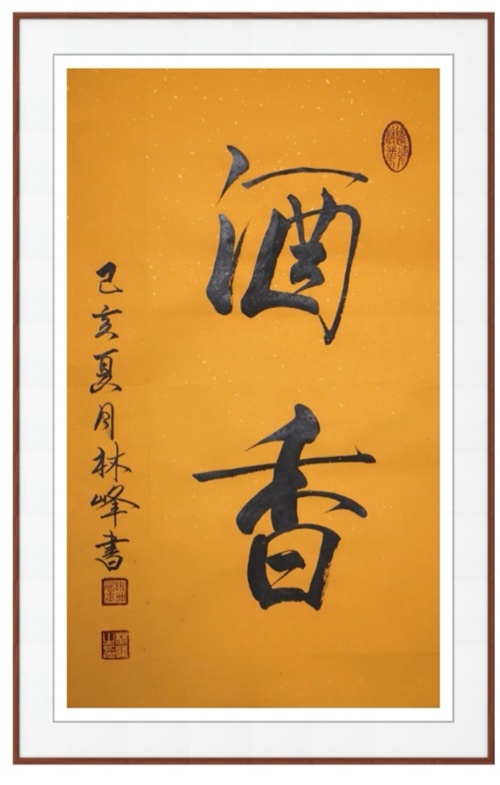 酒香
己亥夏月林峰书